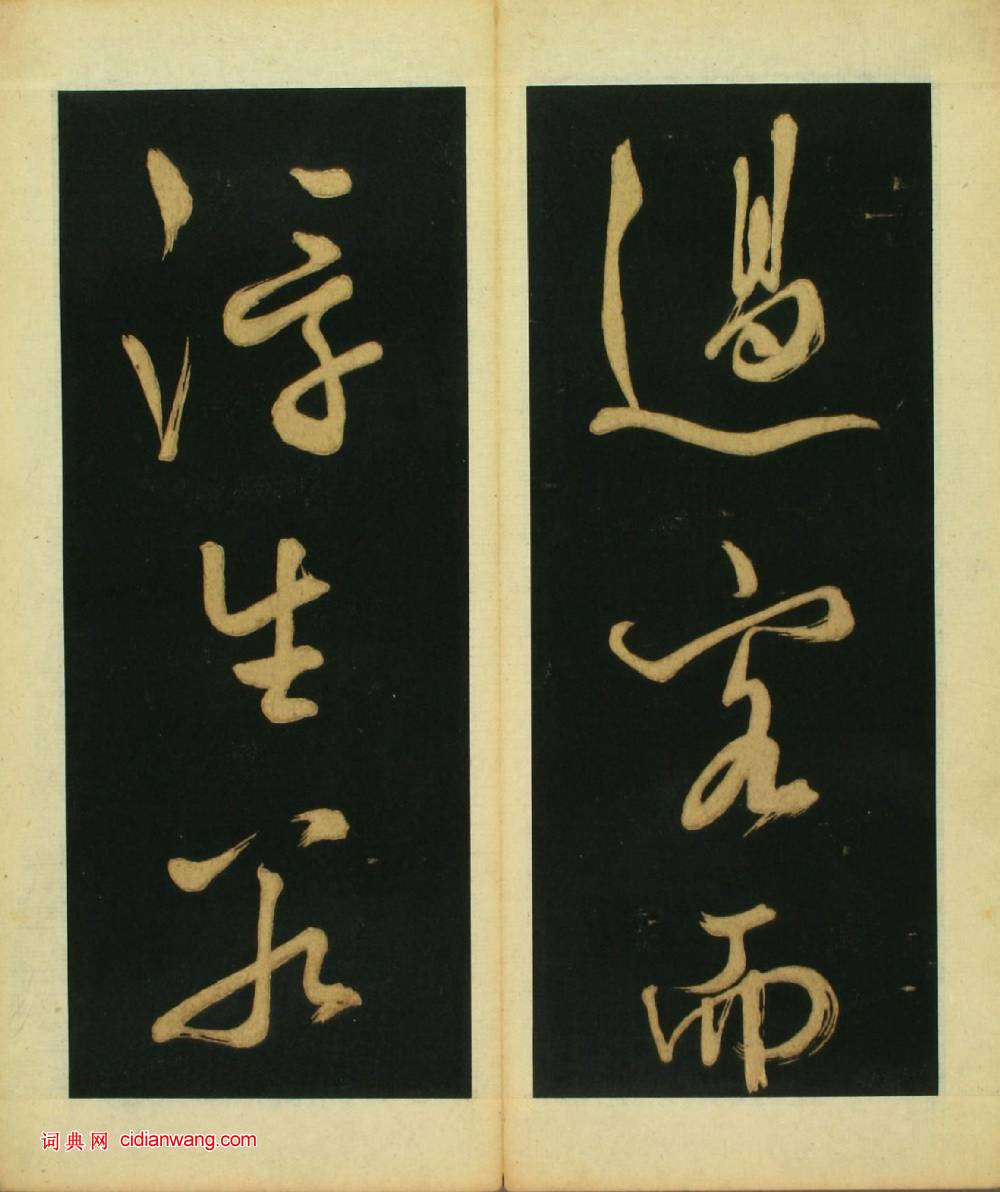 過客而
浮生若
词典网 cidianwang.com